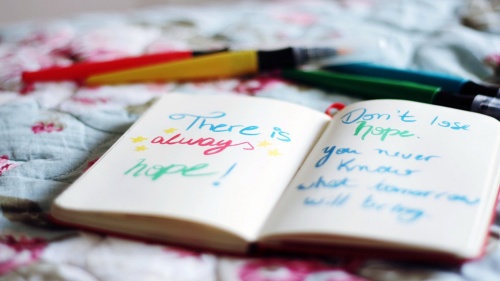 There is
always
hope!
Don't lose
hope.
you never
know
what tomorrow
will bring